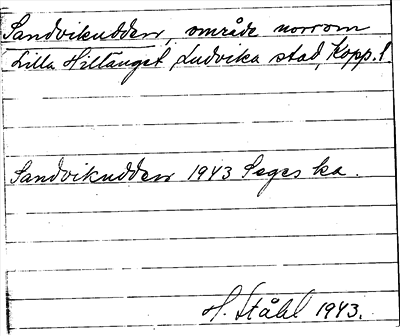 Sandvikudden, område norrom
Lilla Hillänget, Ludvika stad, Kopp. l.
Sandvikudden 1943 Seges ka.
H. Ståhl 1943.